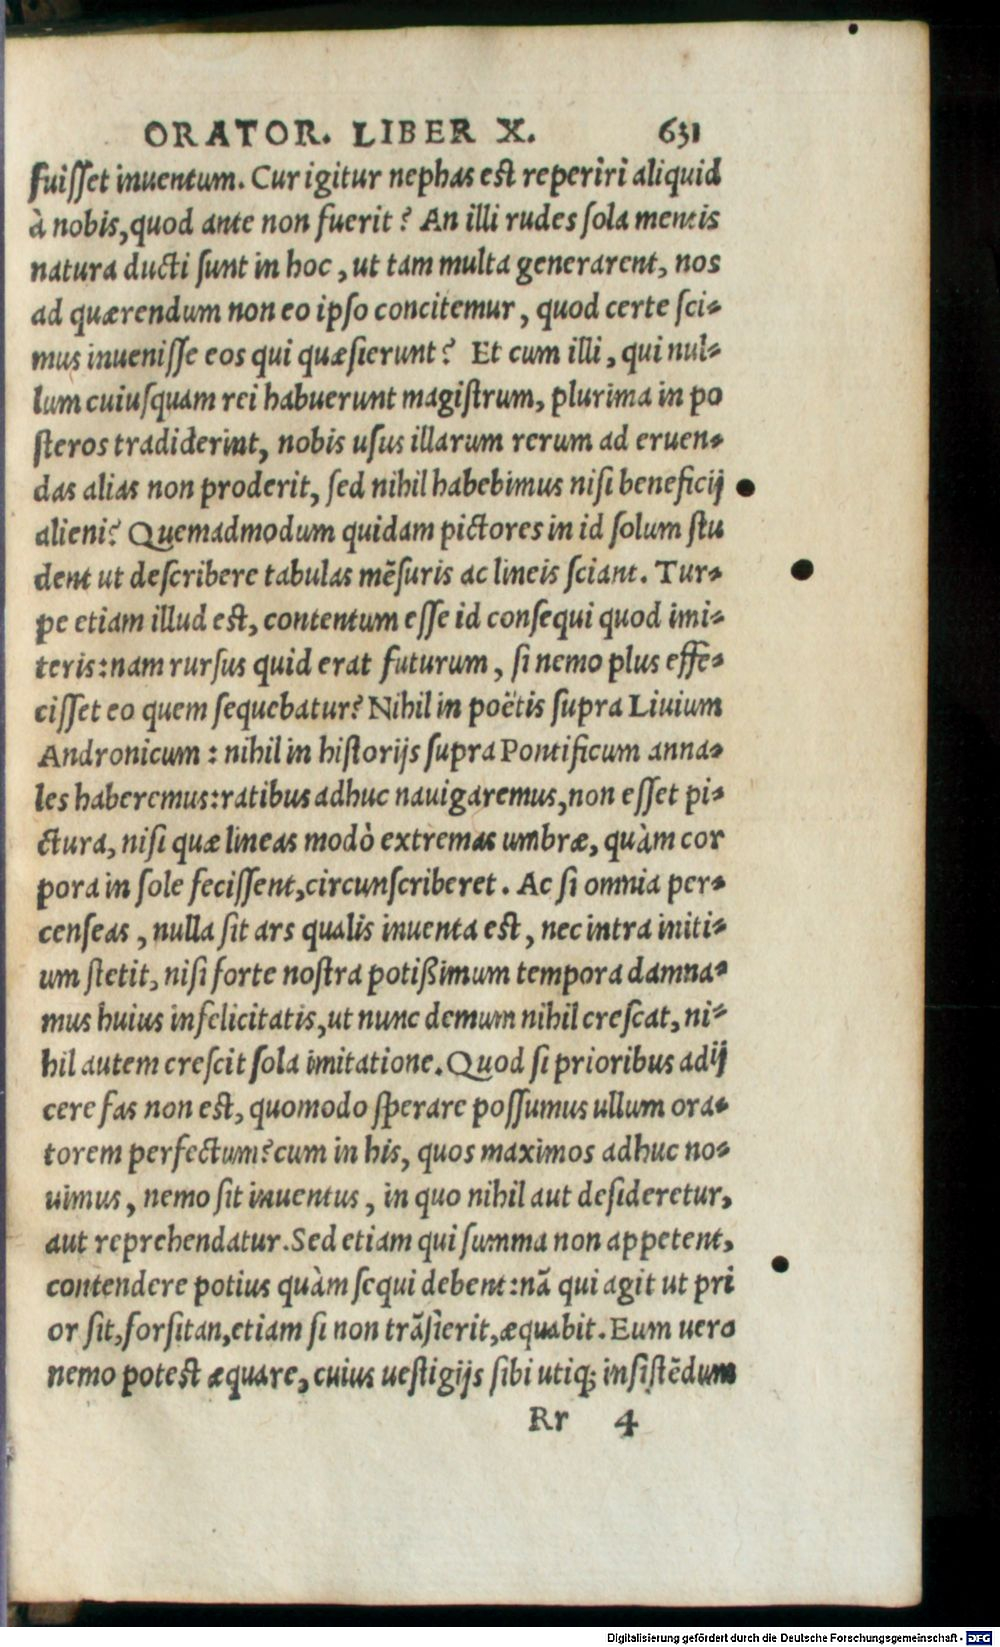 ORATOR. LIBER X. 631
fuiſſet inuentum. Cur igitur nephas est reperiri aliquid
à nobis, quod ante non fuerit? An illi rudes ſola mentis
natura ducti ſunt in hoc, ut tam multa generarent, nos
ad quærendum non eo ipſo concitemur, quod certe ſci-
mus inueniſſe eos qui quæſierunt? Et cum illi, qui nul-
lum cuiuſquam rei habuerunt magiſtrum, plurima in po
ſteros tradiderint, nobis uſus illarum rerum ad eruen-
das alias non proderit, ſed nihil habebimus niſi beneficij
alieni? Quemadmodum quidam pictores in id ſolum ſtu
dent ut deſcribere tabulas mẽſuris ac lineis ſciant. Tur-
pe etiam illud est, contentum eſſe id conſequi quod imi-
teris: nam rurſus quid erat futurum, ſi nemo plus effe-
ciſſet eo quem ſequebatur? Nihil in poëtis ſupra Liuium
Andronicum: nihil in hiſtorijs ſupra Pontificum anna-
les haberemus: ratibus adhuc nauigaremus, non eſſet pi-
ctura, niſi quæ lineas modò extremas umbræ, quàm cor
pora in ſole feciſſent, circunſcriberet. Ac ſi omnia per-
cenſeas, nulla ſit ars qualis inuenta est, nec intra initi-
um ſtetit, niſi forte noſtra potißimum tempora damna-
mus huius infelicitatis, ut nunc demum nihil creſcat, ni-
hil autem creſcit ſola imitatione. Quod ſi prioribus adij
cere fas non est, quomodo ſperare poſſumus ullum ora-
torem perfectum? cum in his, quos maximos adhuc no-
uimus, nemo ſit inuentus, in quo nihil aut deſideretur,
aut reprehendatur. Sed etiam qui ſumma non appetent,
contendere potius quàm ſequi debent: nã qui agit ut pri
or ſit, forſitan, etiam ſi non trãſierit, æquabit. Eum uero
nemo potest æquare, cuius ueſtigijs ſibi utiq; inſiſtẽdum
Rr 4
Digitalisierung gefördert durch die Deutsche Forschungsgemeinschaft - DFG